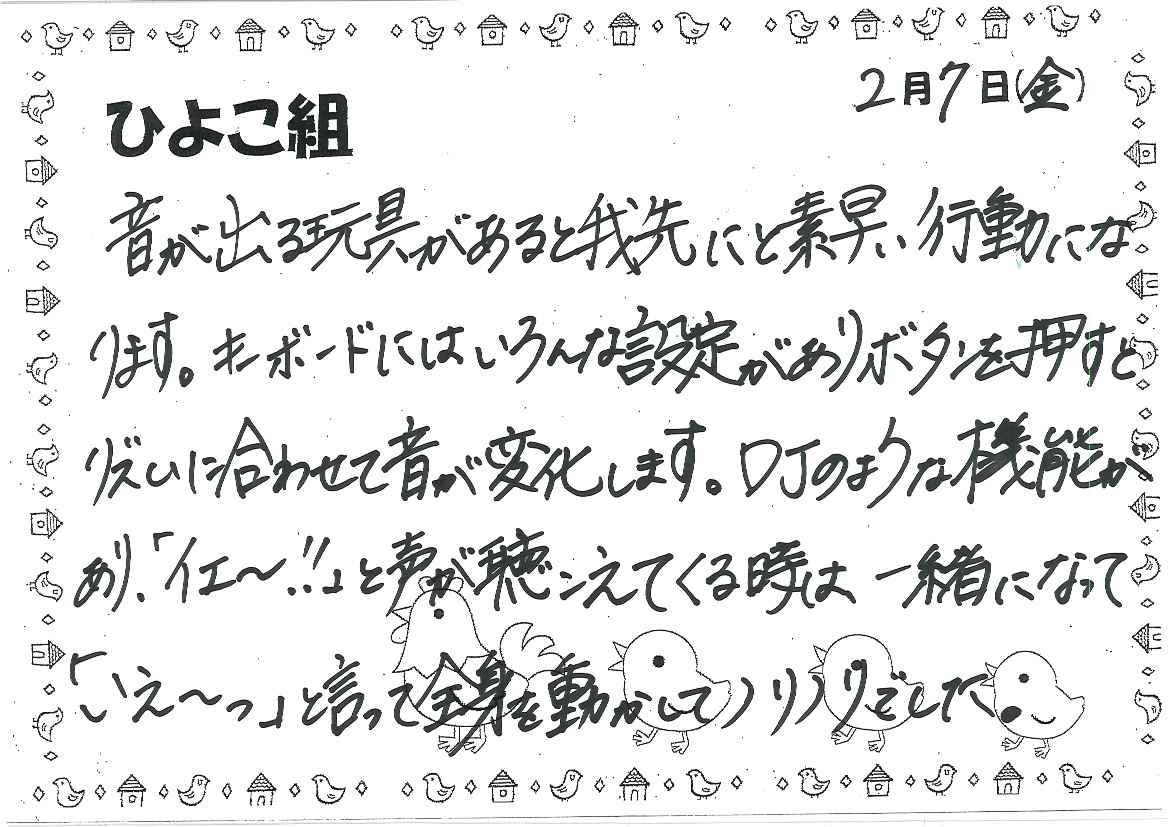 2月7日(金)
ひよこ組
音が出る玩具があると我先にと素早い行動にな
ります。キーボードにはいろんな設定がありボタンを押すと
リズムに合わせて音が変化します。DJのような機能が
あり、「イエ〜!!」と声が聴こえてくる時は、一緒になって
「いえ〜っ」と言って全身を動かしてノリノリでした